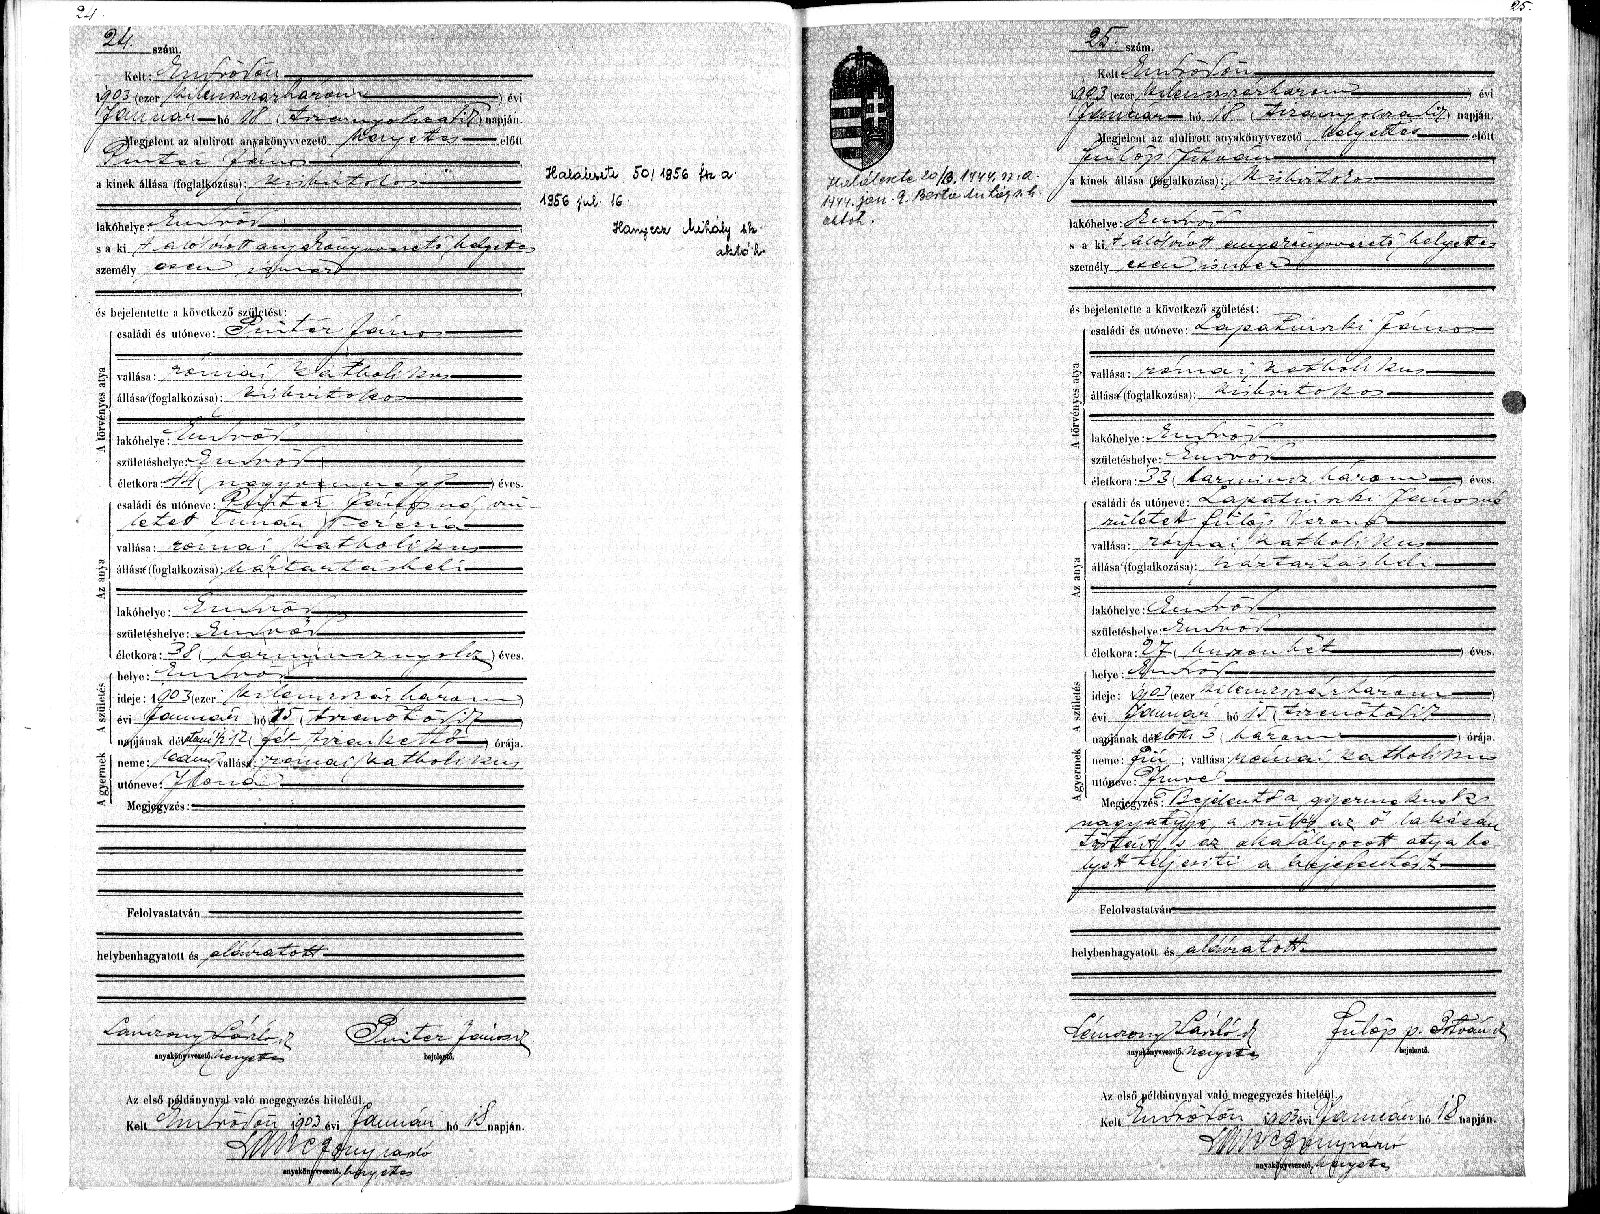 24.
24. szám.
Kelt: Endrődön
1903 (ezer kilenczszázhárom) évi
Január hó 18 (tizennyolczadik) napján.
Megjelent az alulirott anyakönyvvezető helyettes előtt
Pinter János
a kinek állása (foglalkozása): kisbirtokos
lakóhelye: Endrőd
s a kit alólírott anyakönyvvezető helyettes
személyesen ismer
és bejelentette a következő születést:
A törvényes atya
családi és utóneve: Pinter János
vallása: római katholikus
állása (foglalkozása): kisbirtokos
lakóhelye: Endrőd
születéshelye: Endrőd
életkora: 44 (negyvennégy) éves.
Az anya
családi és utóneve: Pinter Jánosné, szü-
letett Terézia
vallása: római katholikus
állása (foglalkozása): háztartásbeli
lakóhelye: Endrőd
születéshelye: Endrőd
életkora: 38 (harmincznyolcz) éves.
A születés
helye: Endrőd
ideje: 1903 (ezer kilenczszázhárom)
évi Január hó 15 (tizenötödik)
napjának délutáni ½12 (fél tizenkettő) órája.
A gyermek
neme: leány; vallása: római katholikus
utóneve: Ilona
Megjegyzés:
Felolvastatván
helybenhagyatott és aláiratott
László Pinter János
anyakönyvvezető helyettes bejelentő.
Az első példánynyal való megegyezés hiteléül.
Kelt Endrődön 1903 évi Január hó 18 napján.
anyakönyvvezető helyettes
Halálesete 50/1956 fsz a
1956 jul. 16
Hanyecz Mihály sk
aktóh
25.
25. szám.
Kelt: Endrődön
1903 (ezer kilenczszázhárom) évi
Január hó 18 (tizennyolczadik) napján.
Megjelent az alulirott anyakönyvvezető helyettes előtt
Fülöp István
a kinek állása (foglalkozása): kisbirtokos
lakóhelye: Endrőd
s a kit alólírott anyakönyvvezető helyettes
személyesen ismer
és bejelentette a következő születést:
A törvényes atya
családi és utóneve: Lapatinszki János
vallása: római katholikus
állása (foglalkozása): kisbirtokos
lakóhelye: Endrőd
születéshelye: Endrőd
életkora: 33 (harmincz három) éves.
Az anya
családi és utóneve: Lapatinszki Jánosné
született Fülöp Verona
vallása: római katholikus
állása (foglalkozása): háztartásbeli
lakóhelye: Endrőd
születéshelye: Endrőd
életkora: 27 (huszonhét) éves.
A születés
helye: Endrőd
ideje: 1903 (ezer kilenczszázhárom)
évi Január hó 15 (tizenötödik)
napjának délelőtti 3 (három) órája.
A gyermek
neme: fiú; vallása: római katholikus
utóneve: Imre
Megjegyzés: Bejelentő a gyermeknek
nagyatyja, a szülés az ő lakásán
történt s az akadályozott atya he-
lyett teljesíti a bejelentést
Felolvastatván
helybenhagyatott és aláiratott
László Fülöp p. István
anyakönyvvezető helyettes bejelentő.
Az első példánynyal való megegyezés hiteléül.
Kelt Endrődön 1903 évi Január hó 18 napján.
anyakönyvvezető helyettes
Halálesete 20/1944
1944. jan. 9.